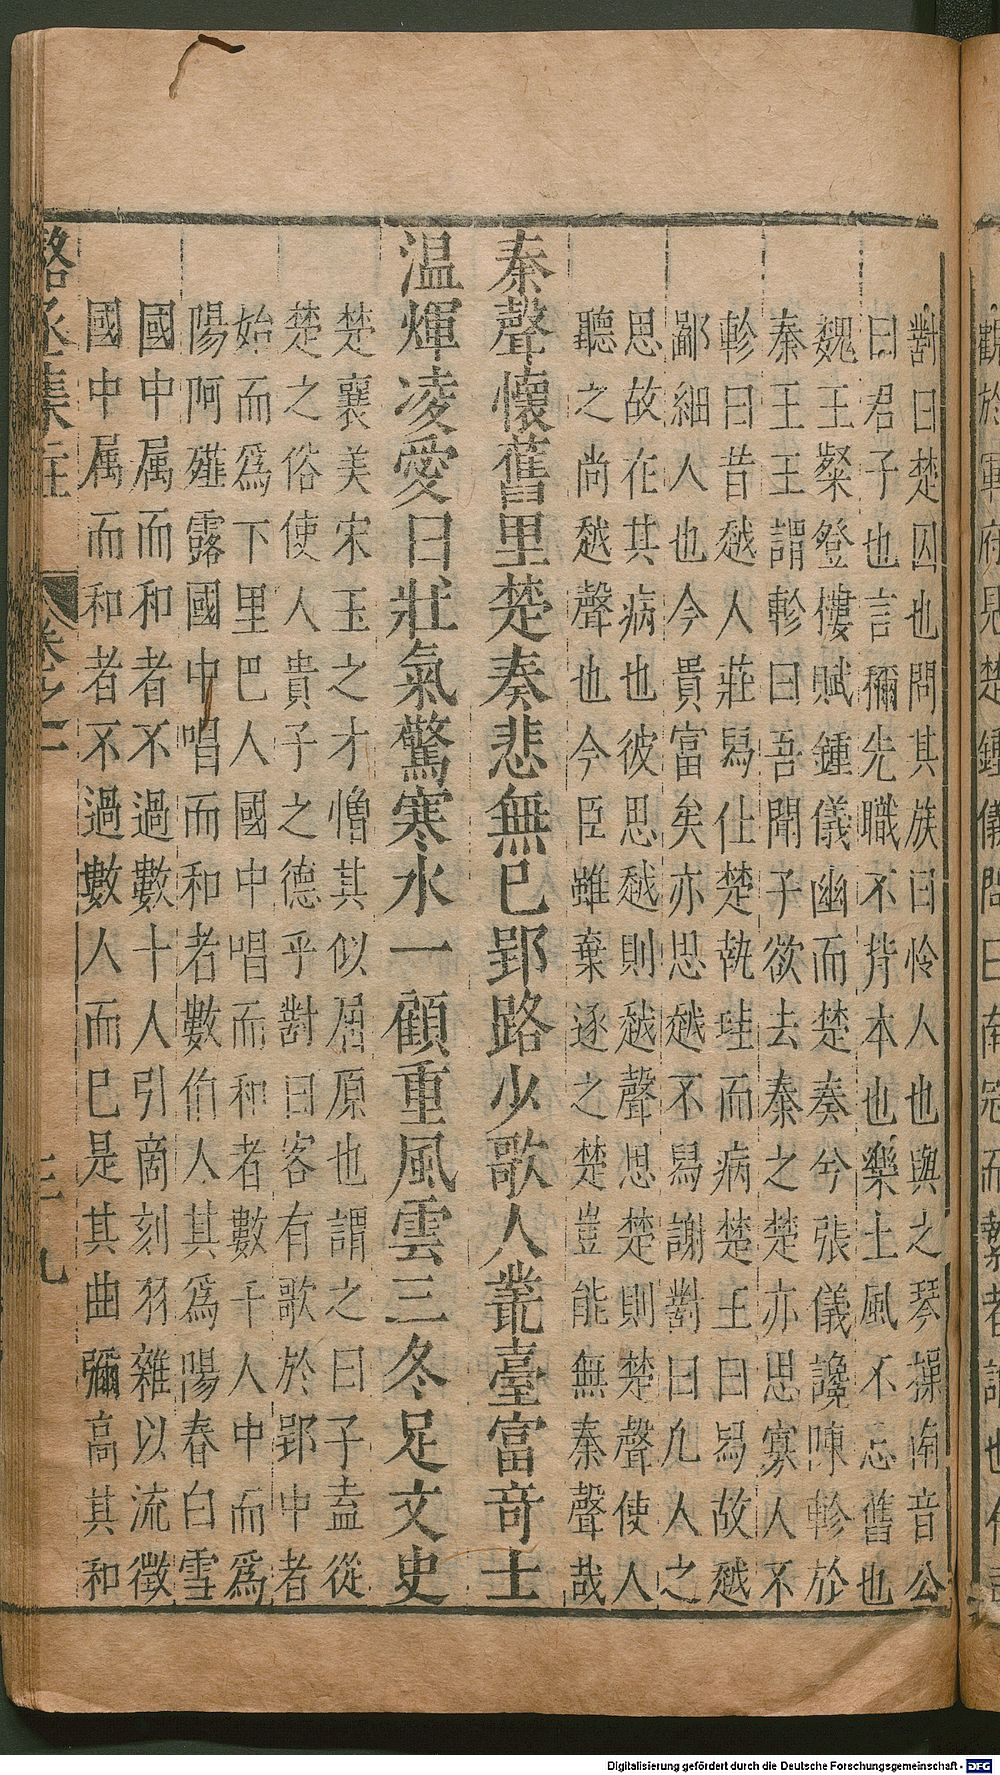 對曰楚囚也問其族曰怜人也與之琴操南音公
曰君子也言稱先職不持本也樂土風不忘舊也
魏王粲登樓賦鍾儀幽而楚奏兮張儀讒陳軫於
秦王王謂軫曰吾聞子欲去秦之楚亦思寡人不
軫曰昔越人莊舄仕楚執珪而病楚王曰舄故越
鄙細人也今貴富矣亦思越不舄謝對曰凡人之
思故在其病也彼思越則越聲思楚則楚聲使人
聽之尚越聲也今臣雖棄逐之楚豈能無秦聲哉
秦聲懷舊里楚奏悲無已郢路少歌人叢臺富奇士
温煇凌愛日壯氣驚寒水一顧重風雲三冬足文史
楚襄美宋玉之才憎其似屈原也謂之曰子盍從
楚之俗使人貴子之德乎對曰客有歌於郢中者
始而爲下里巴人國中唱而和者數千人中而爲
陽阿薤露國中唱而和者數伯人其爲陽春白雪
國中属而和者不過數十人引商刻羽雜以流徵
國中属而和者不過數人而已是其曲彌高其和
駱丞集註 卷之一 三九
Digitalisierung gefördert durch die Deutsche Forschungsgemeinschaft - DFG